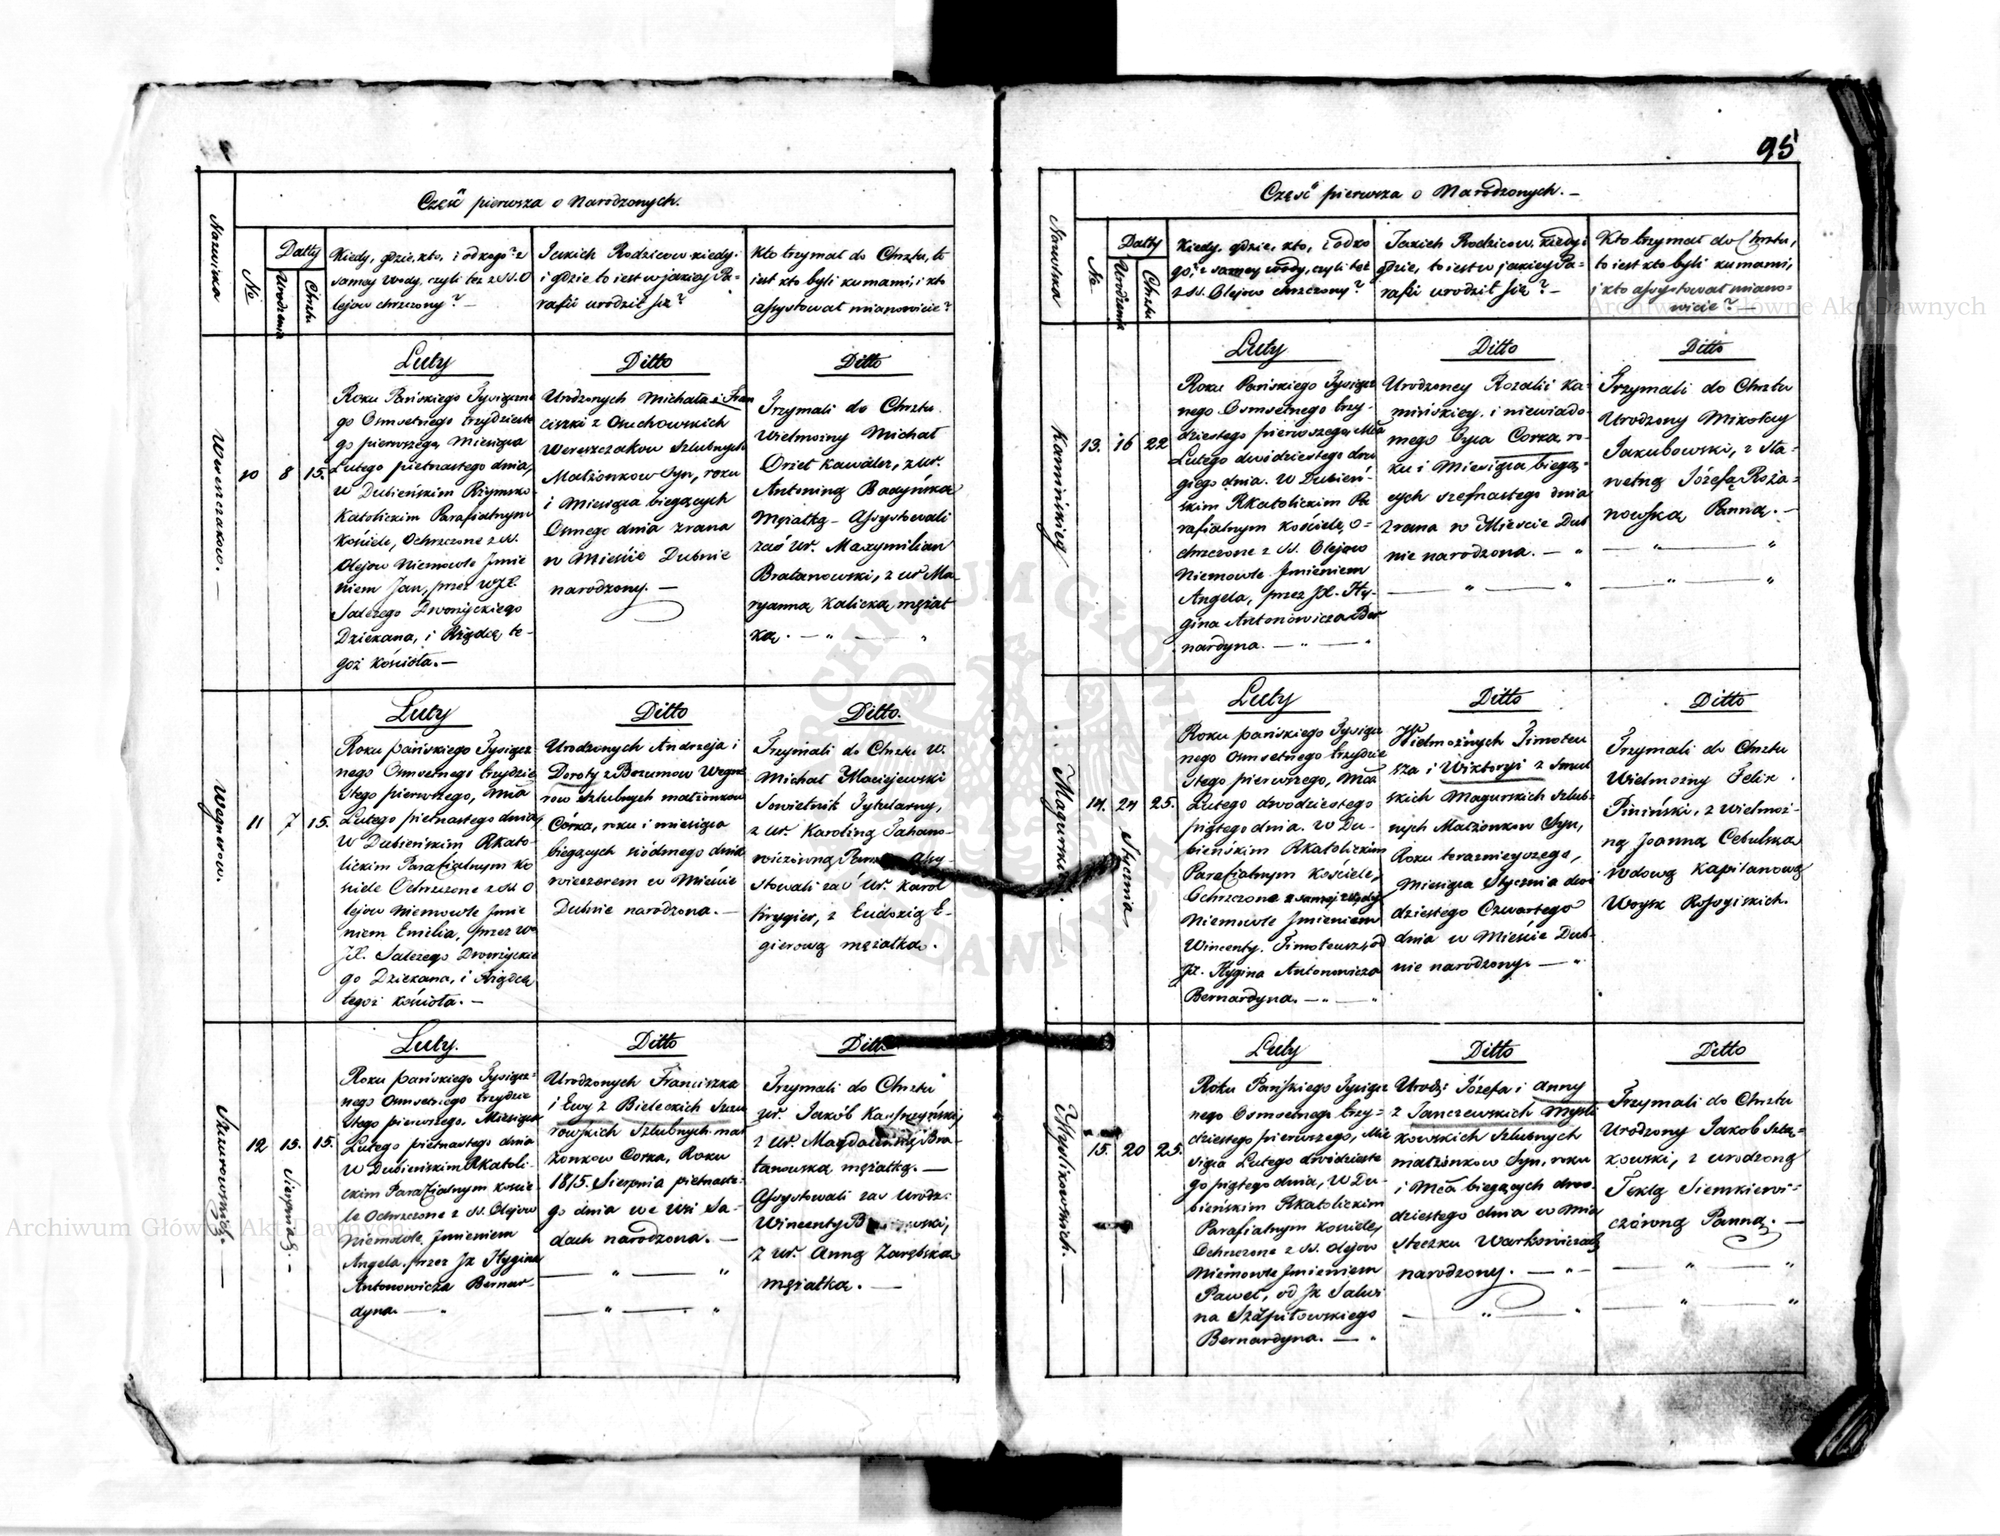 Część pierwsza o Narodzonych.
Nazwiska
No
Datty
Urodzenia
Chrztu
Kiedy, gdzie, kto, i od kogo? z
samey wody, czyli też z SS. O
lejow chrzczony? —
Jakich Rodzicow kiedy.
i gdzie to iest w jakiey Pa-
rafii urodził się?
Kto trzymał do Chrztu, to
iest kto byli kumami, i kto
assystował mianowicie?
Wereszczakow. —
10
8
15.
Luty
Roku Pańskiego Tysiączne
go Osmsetnego trzydzieste
go pierwszego, Miesiąca
Lutego piętnastego dnia,
w Dubieńskim Rzymsko-
Katolickim Parafialnym
Kościele, Ochrzczone z SS.
Olejow Niemowle Jmie
niem Jan, przez WJX.
Salezego Dworzyckiego
Dziekana, i Rządcę te-
goż Kościoła. —
Ditto
Urodzonych Michała i Fran
ciszki z Osuchowskich
Wereszczakow Szlubnych
Małżonkow Syn, roku
i Miesiąca bieżących
Osmego dnia zrana
w Mieście Dubnie
narodzony. —
Ditto
Trzymali do Chrztu.
Wielmożny Michał
Orzeł Kawaler, z Ur.
Antoniną Badyńską
Mężatką — Assystowali
zaś Ur. Maxymilian
Bratanowski, z Ur Ma-
ryanną Kalicką mężat
ką. — " — "
Wegnerow.
11
7
15.
Luty
Roku pańskiego Tysiącz
nego Osmsetnego trzydzie
stego pierwszego, Mca
Lutego piętnastego dnia,
w Dubieńskim RKato-
lickim Parafialnym Ko
ściele Ochrzczone z SS O
lejow Niemowle Jmie
niem Emilia, przez W
JX. Salezego Dworzyckie
go Dziekana, i Rządcę
tegoż Kościoła. —
Ditto
Urodzonych Andrzeja i
Doroty z Bozumow Wegne
row szlubnych małżonkow
Córka, roku i miesiąca
bieżących siódmego dnia
wieczorem w Mieście
Dubnie narodzona. —
Ditto.
Trzymali do Chrztu W.
Michał Maciejewski
Sowietnik Tytularny,
z Ur. Karoliną Jahano-
wiczówną Assy-
stowali zaś Ur. Karol
Krygier, z Eudoxią E-
gierową mężatką.
Szurowskich. —
12
15. Sierpnia
15.
Luty.
Roku pańskiego Tysiącz-
nego Osmsetnego trzydzie
stego pierwszego, Miesiąca
Lutego piętnastego dnia
w Dubieńskim RKatoli-
ckim Parafialnym Koście
le Ochrzczone z SS. Olejow
Niemowle Jmieniem
Angela, przez Jx Hygina
Antonowicza Bernar-
dyna. — "
Ditto
Urodzonych Franciszka
i Ewy z Bieleckich Szcu
rowskich Szlubnych mał
żonkow Corka, Roku
1815. Sierpnia piętnaste-
go dnia we wsi Sa-
dach narodzona. —
— " — "
— " — "
Ditto
Trzymali do Chrztu
Ur. Jakób
z Ur. Magdaleną Bra-
tanowską mężatką. —
Assystowali zaś Urodz:
Wincenty
z Ur. Anną Zarębską
mężatką. —
95
Część pierwsza o Narodzonych. —
Nazwiska
No
Datty
Urodzenia
Chrztu
Kiedy, gdzie, kto, i od ko
go, z samey wody, czyli też
z SS. Olejow chrzczony?
Jakich Rodzicow, kiedy i
gdzie, to iest w jakiey Pa-
rafii urodził się? —
Kto trzymał do Chrztu,
to iest kto byli kumami,
i kto assystował miano-
wicie? —
Kamińskiey
13.
16
22
Luty
Roku Pańskiego Tysiącz
nego Osmsetnego trzy-
dziestego pierwszego, Mca
Lutego dwódziestego dru
giego dnia. w Dubień-
skim RKatolickim Pa
rafialnym Kościele, O-
chrzczone z SS. Olejow
Niemowle Jmieniem
Angela, przez JX. Hy-
gina Antonowicza Ber
nardyna. — " — "
Ditto
Urodzoney Rozalii Ka-
mińskiey i niewiado-
mego Oyca Corka, ro-
ku i Miesiąca bieżą-
cych szesnastego dnia
zrana w Mieście Dub
nie narodzona. — "
— " — "
Ditto
Trzymali do Chrztu
Urodzony Mikołay
Jakubowski, z Sta-
wetną Józefą Roża-
nowską Panną. —
— " — "
— " — "
Magurskich. —
14.
24 Stycznia
25.
Luty
Roku pańskiego Tysiącz
nego Osmsetnego trzydzie
stego pierwszego, Mca
Lutego dwodziestego
piątego dnia. w Du-
bieńskim RKatolickim
Parafialnym Kościele,
Ochrzczone z samey wody
Niemowle Jmieniem
Wincenty Timoteusz od
JX. Hygina Antonowicza
Bernardyna. — " — "
Ditto
Wielmożnych Timoteu
sza i Wiktoryi z
skich Magurskich Szlub-
nych Małżonkow Syn,
Roku teraznieyszego,
Miesiąca Stycznia dwó
dziestego Czwartego
dnia w Mieście Dub-
nie narodzony. — "
Ditto
Trzymali do Chrztu
Wielmożny Felix
Piniński, z Wielmoż-
ną Joanną Cebulską
wdową Kapitanową
Woysk Rossyiskich.
Mysłikowskich. —
15.
20
25.
Luty
Roku Pańskiego Tysiącz
nego Osmsetnego trzy-
dziestego pierwszego, Mie
siąca Lutego dwódzieste
go piątego dnia, w Du-
bieńskim RKatolickim
Parafialnym Kościele,
Ochrzczone z SS. Olejow
Niemowle Jmieniem
Paweł, od Jx Salwi
na Szapiłowskiego
Bernardyna. — "
Ditto
Urodz: Józefa i Anny
z Janczewskich Mysli
kowskich szlubnych
małżonkow Syn, roku
i Mca bieżących dwo-
dziestego dnia w Mia
steczku Warkowiczach
narodzony. — " —
— " — "
Ditto
Trzymali do Chrztu
Urodzony Jakob Szlą-
kowski, z urodzoną
Teklą Siemkiewi-
czówną Panną. —
— " — "
— " — "
Archiwum Główne Akt Dawnych
Archiwum Główne Akt Dawnych
ARCHIWUM GŁÓWNE AKT DAWNYCH